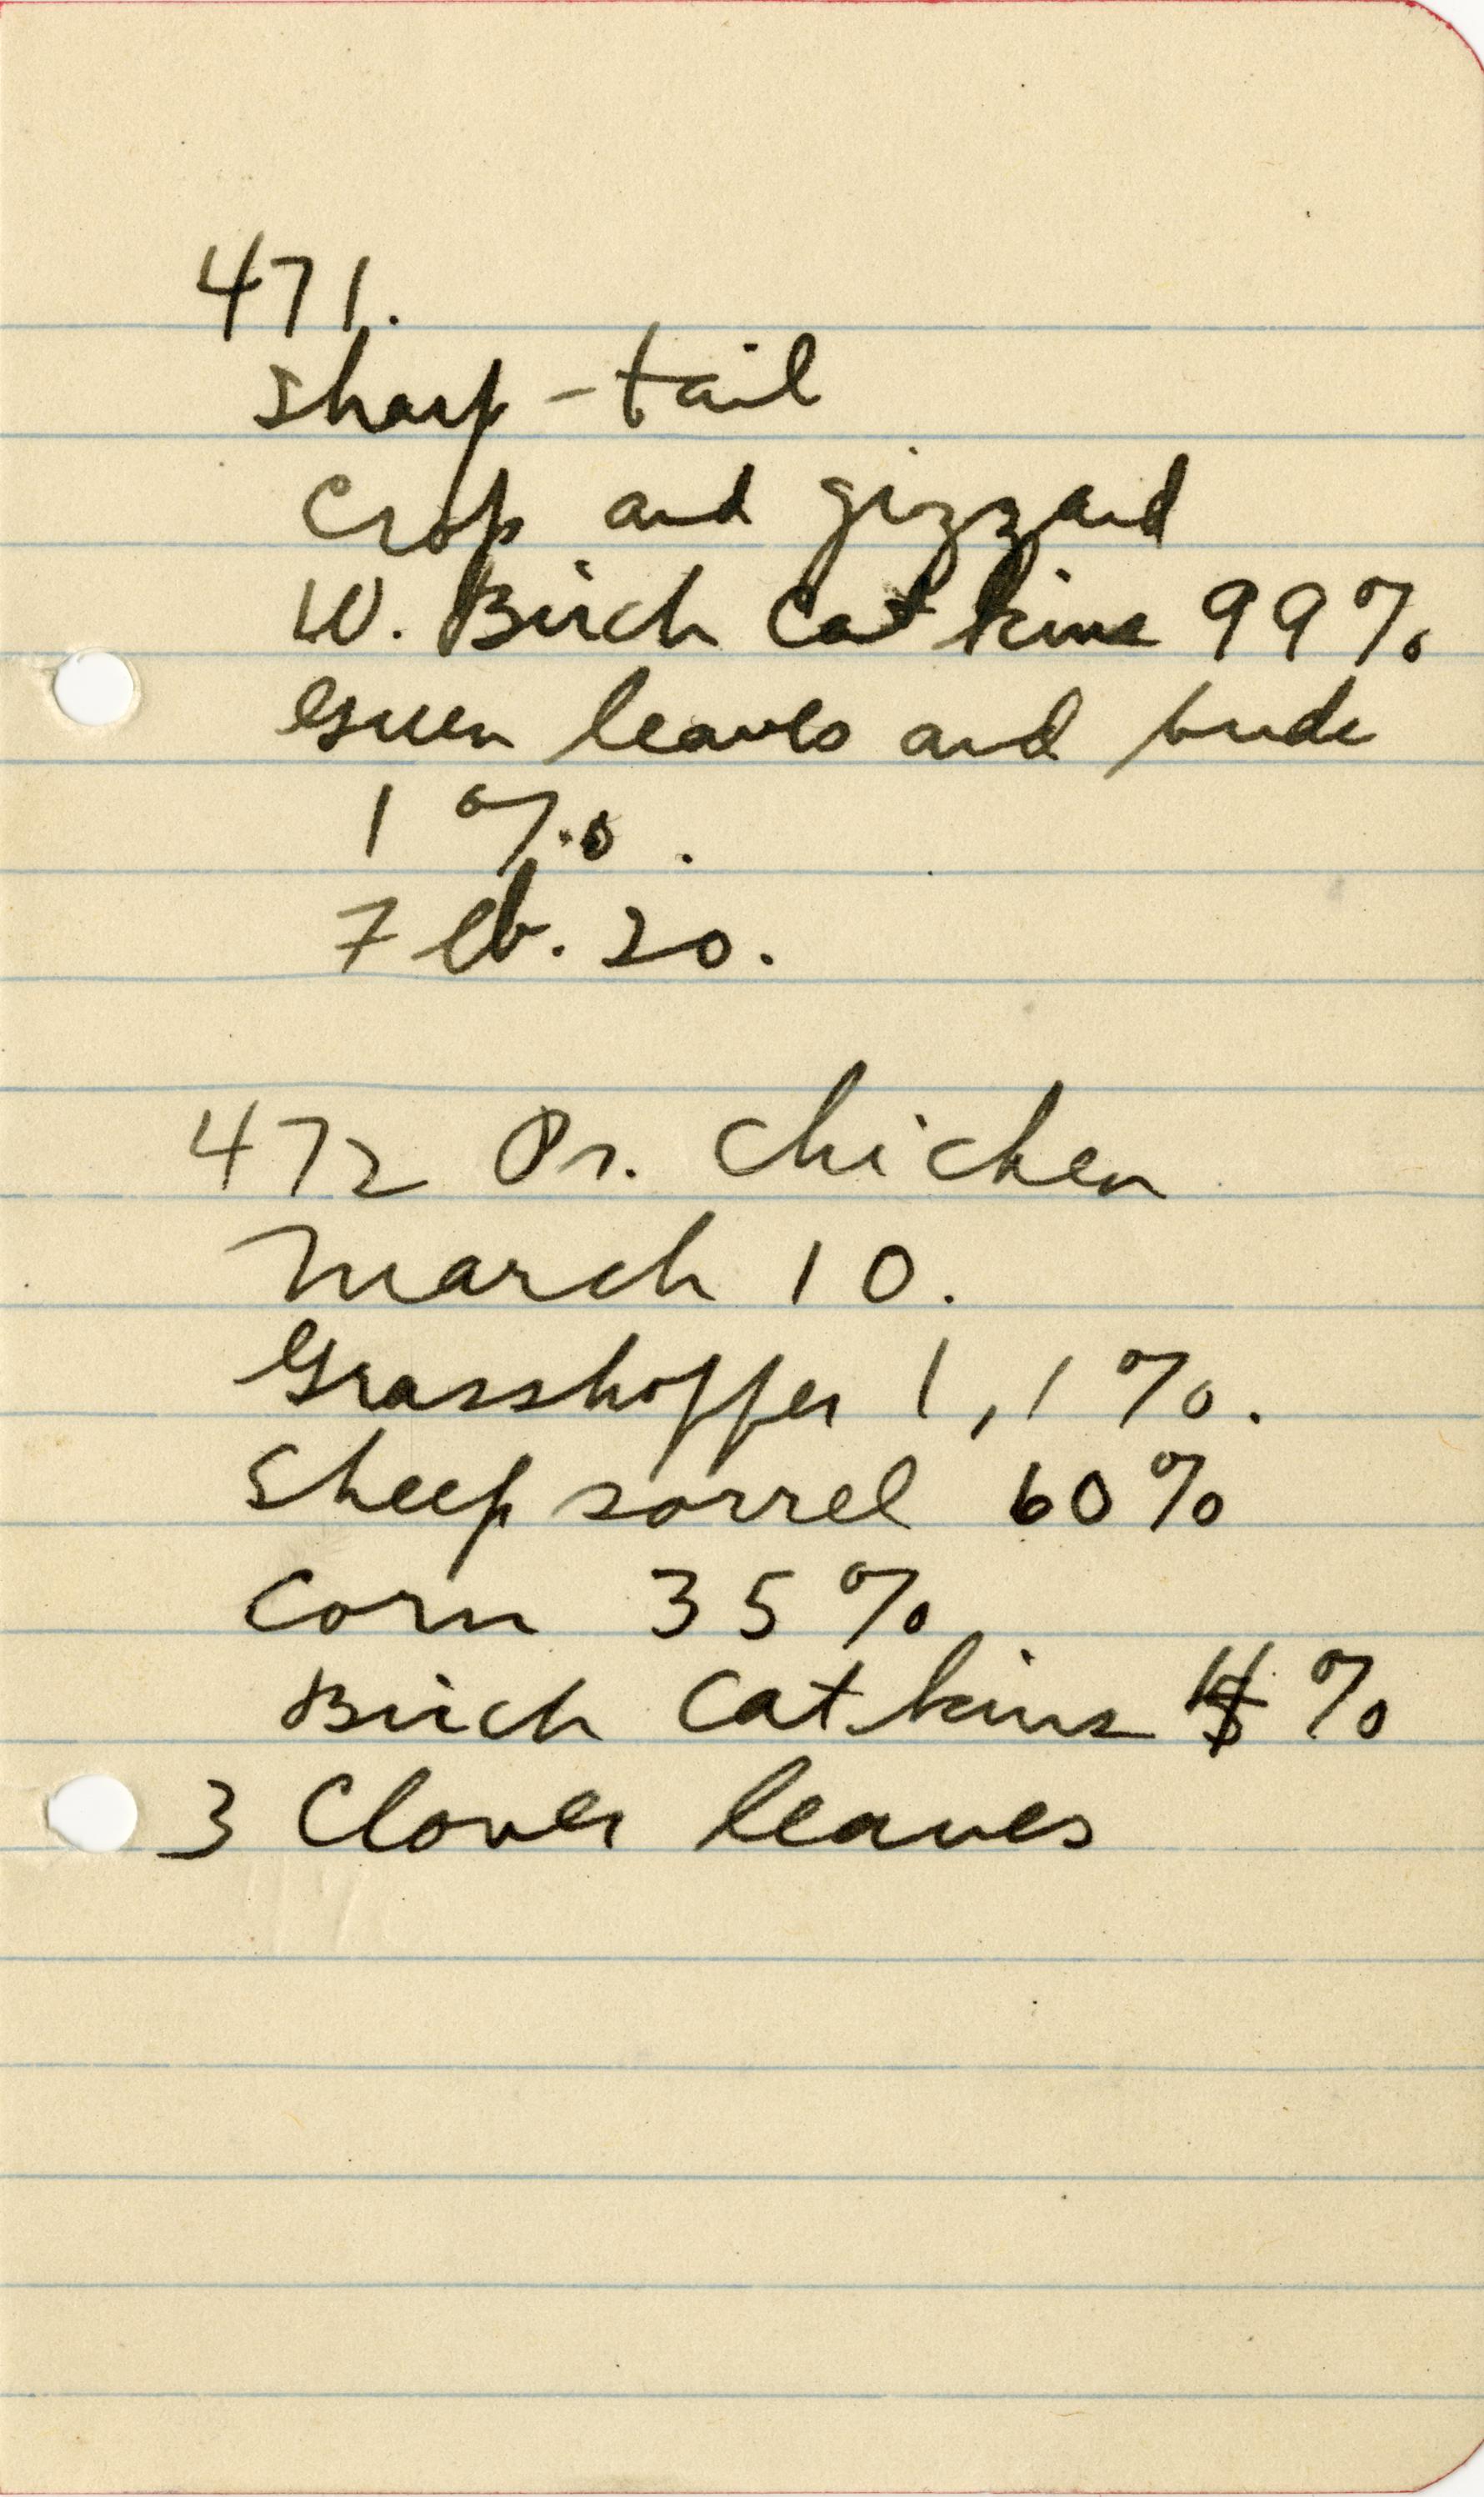 471.
Sharp-tail
Crop and gizzard
W. Birch Catkins 99%
Green leaves and buds
1%.
Feb. 20.
472 Pr. Chicken
March 10.
Grasshopper 1, 1%.
Sheep sorrel 60%
Corn 35%
Birch Catkins 4%
3 Clover leaves